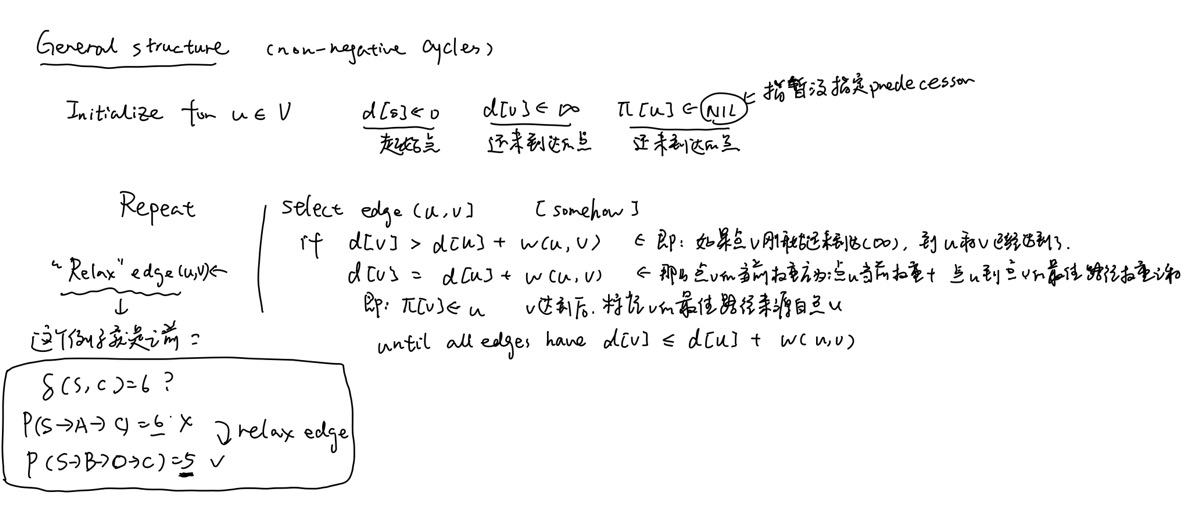 General structure (non-negative cycles)
← 指暂没指定predecessor
Initialize for u ∈ V d[s]←0 d[v]←∞ π[u]←NIL
起始点 还未到达的点 还未到达的点
Repeat select edge (u,v] [somehow]
if d[v] > d[u] + w(u,v) ← 即: 如果点v刚开始还未到达(∞), 到u和v已经达到了.
"Relax" edge(u,v)← d[v] = d[u] + w(u,v) ← 那么点v的当前权重应为:点u当前权重+ 点u到点v的最佳路径权重之和
↓ 即: π[v]← u v达到后, 将v的最佳路径来源自点u
这个例子就是之前 =
until all edges have d[v] ≤ d[u] + w(u,v)
δ(S,C)=6 ?
P(S→A→C)=6 ×
relax edge
P(S→B→D→C)=5 ✓